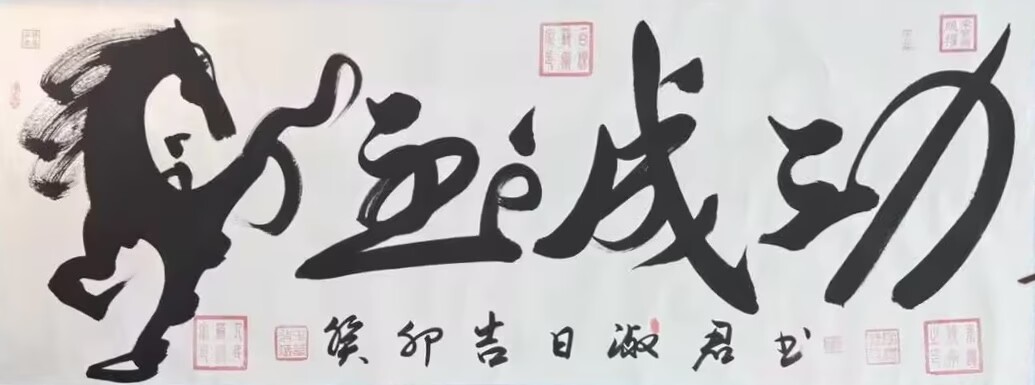 马到成功
癸卯吉日淑君书